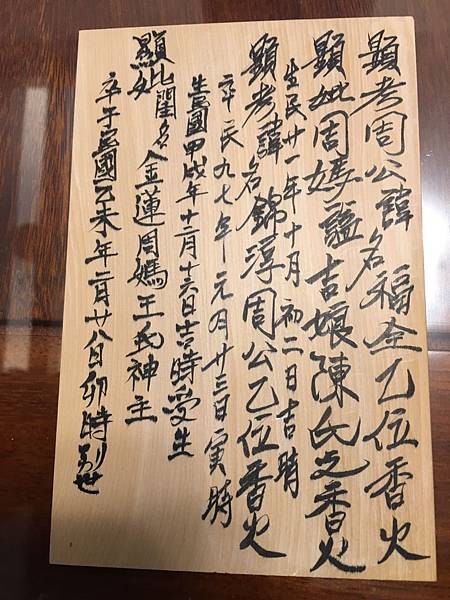 顯考周公諱名福全乙位香火
顯妣周媽謚吉娘陳氏之香火
生民廿一年十月初二日吉時
顯考諱名錦淳周公乙位香火
卒民九七年元月廿三日寅時
生民國甲戌年十二月十六日吉時受生
顯妣閨名金蓮周媽王氏神主
卒于民國乙未年二月廿八日卯時別世